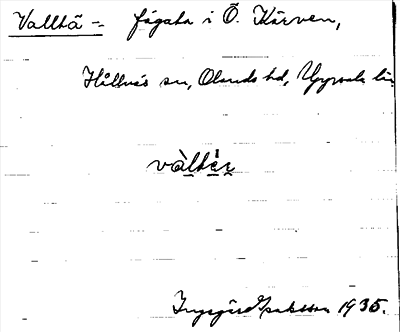 Vallhä = fägata i Ö. Kärven,
Hållnäs sn, Olands hd, Uppsala län
Ingegärd Isaksson 1935.